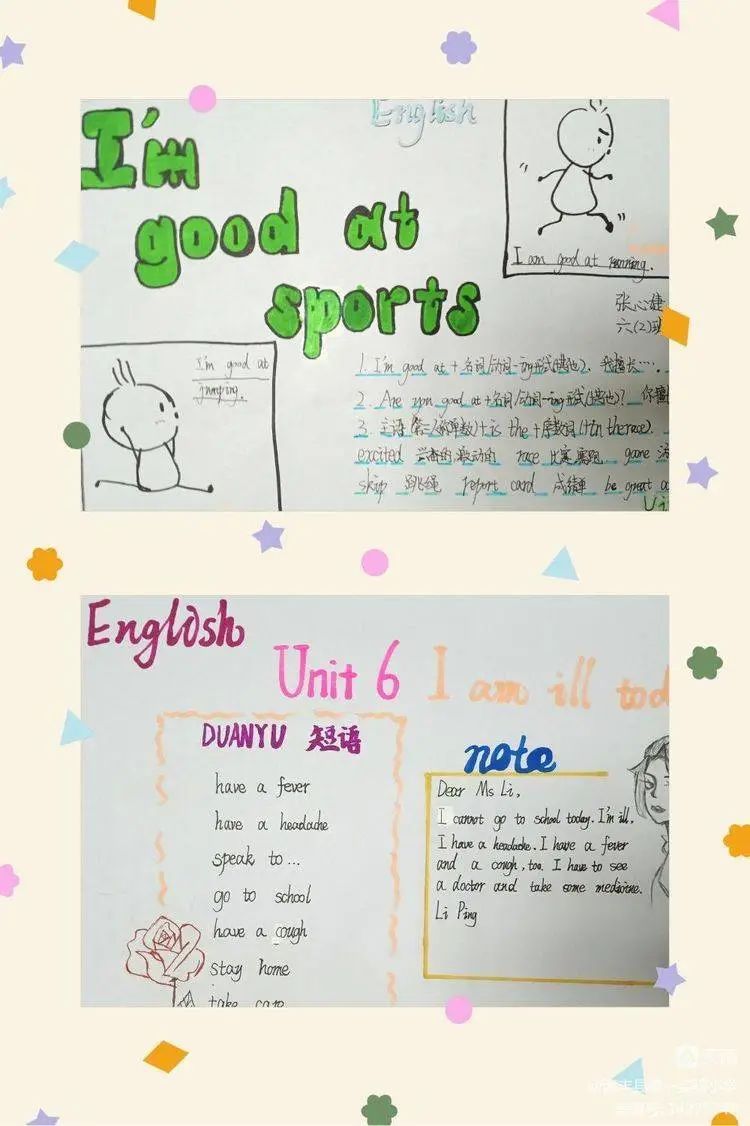 English
I'm
good at
sports
I am good at running.
张心婕
六(2)班
I'm good at
jumping.
1. I'm good at +名词/动词-ing形式(其他). 我擅长…
2. Are you good at +名词/动词-ing形式(其他)? 你擅
3. 主语(第三人称单数)+is the +序数词(+in the race).
excited 兴奋的,激动的 race 比赛,赛跑 game
skip 跳绳 report card 成绩单 be great
English
Unit 6 I am ill tod
DUANYU 短语
have a fever
have a headache
speak to...
go to school
have a cough
stay home
take care
note
Dear Ms Li,
I cannot go to school today. I'm ill.
I have a headache. I have a fever
and a cough, too. I have to see
a doctor and take some medicine.
Li Ping